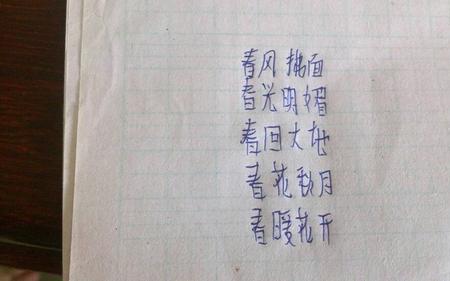 春风拂面
春光明媚
春回大地
春花秋月
春暖花开